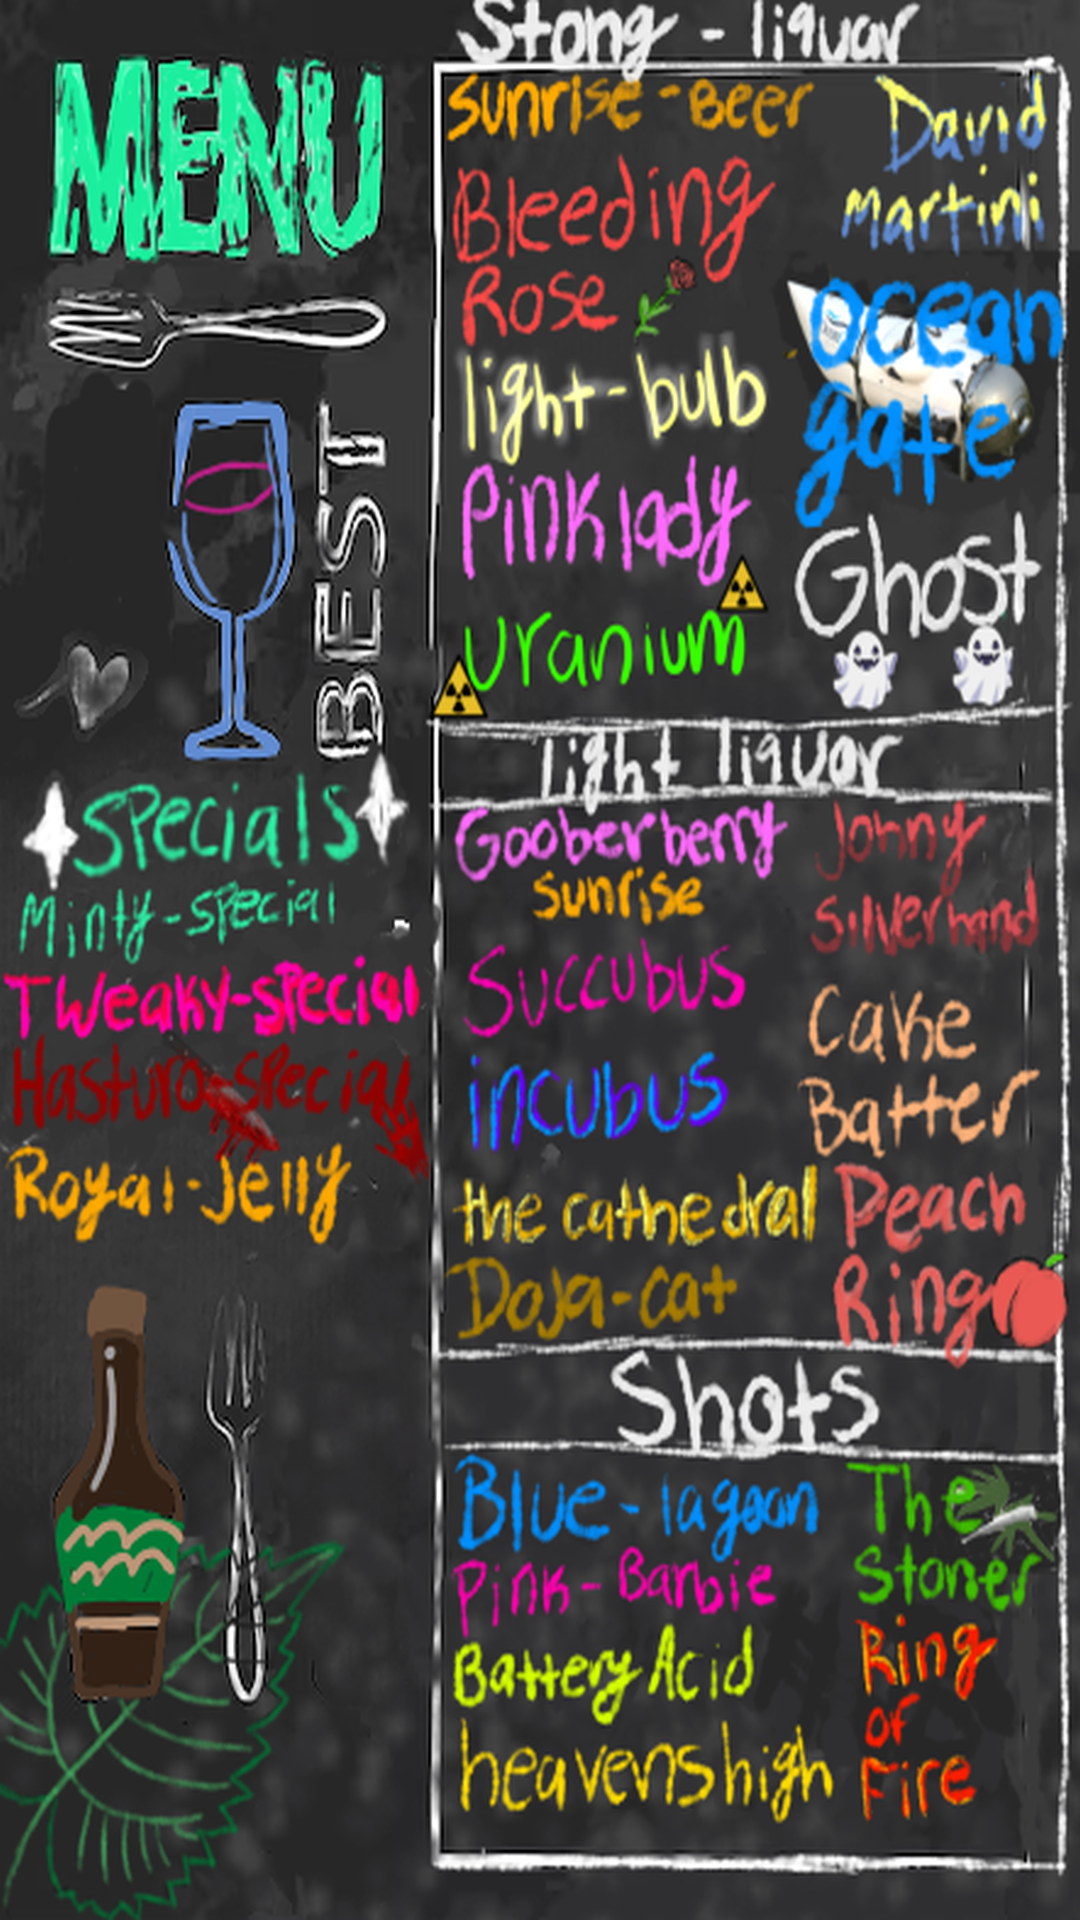 MENU
BEST
Specials
Minty-special
Tweaky-special
Hasturo-special
Royal-Jelly
Stong - liquar
sunrise-Beer
Bleeding
Rose
light-bulb
Pink lady
uranium
David
Martini
ocean
gate
Ghost
light liquar
Gooberberry
sunrise
Succubus
incubus
the cathedral
Doja-cat
Johny
silverhand
Cake
Batter
Peach
Ring
Shots
Blue-lagoon
Pink-Barbie
Battery Acid
heavens high
The
Stoner
Ring
of
Fire